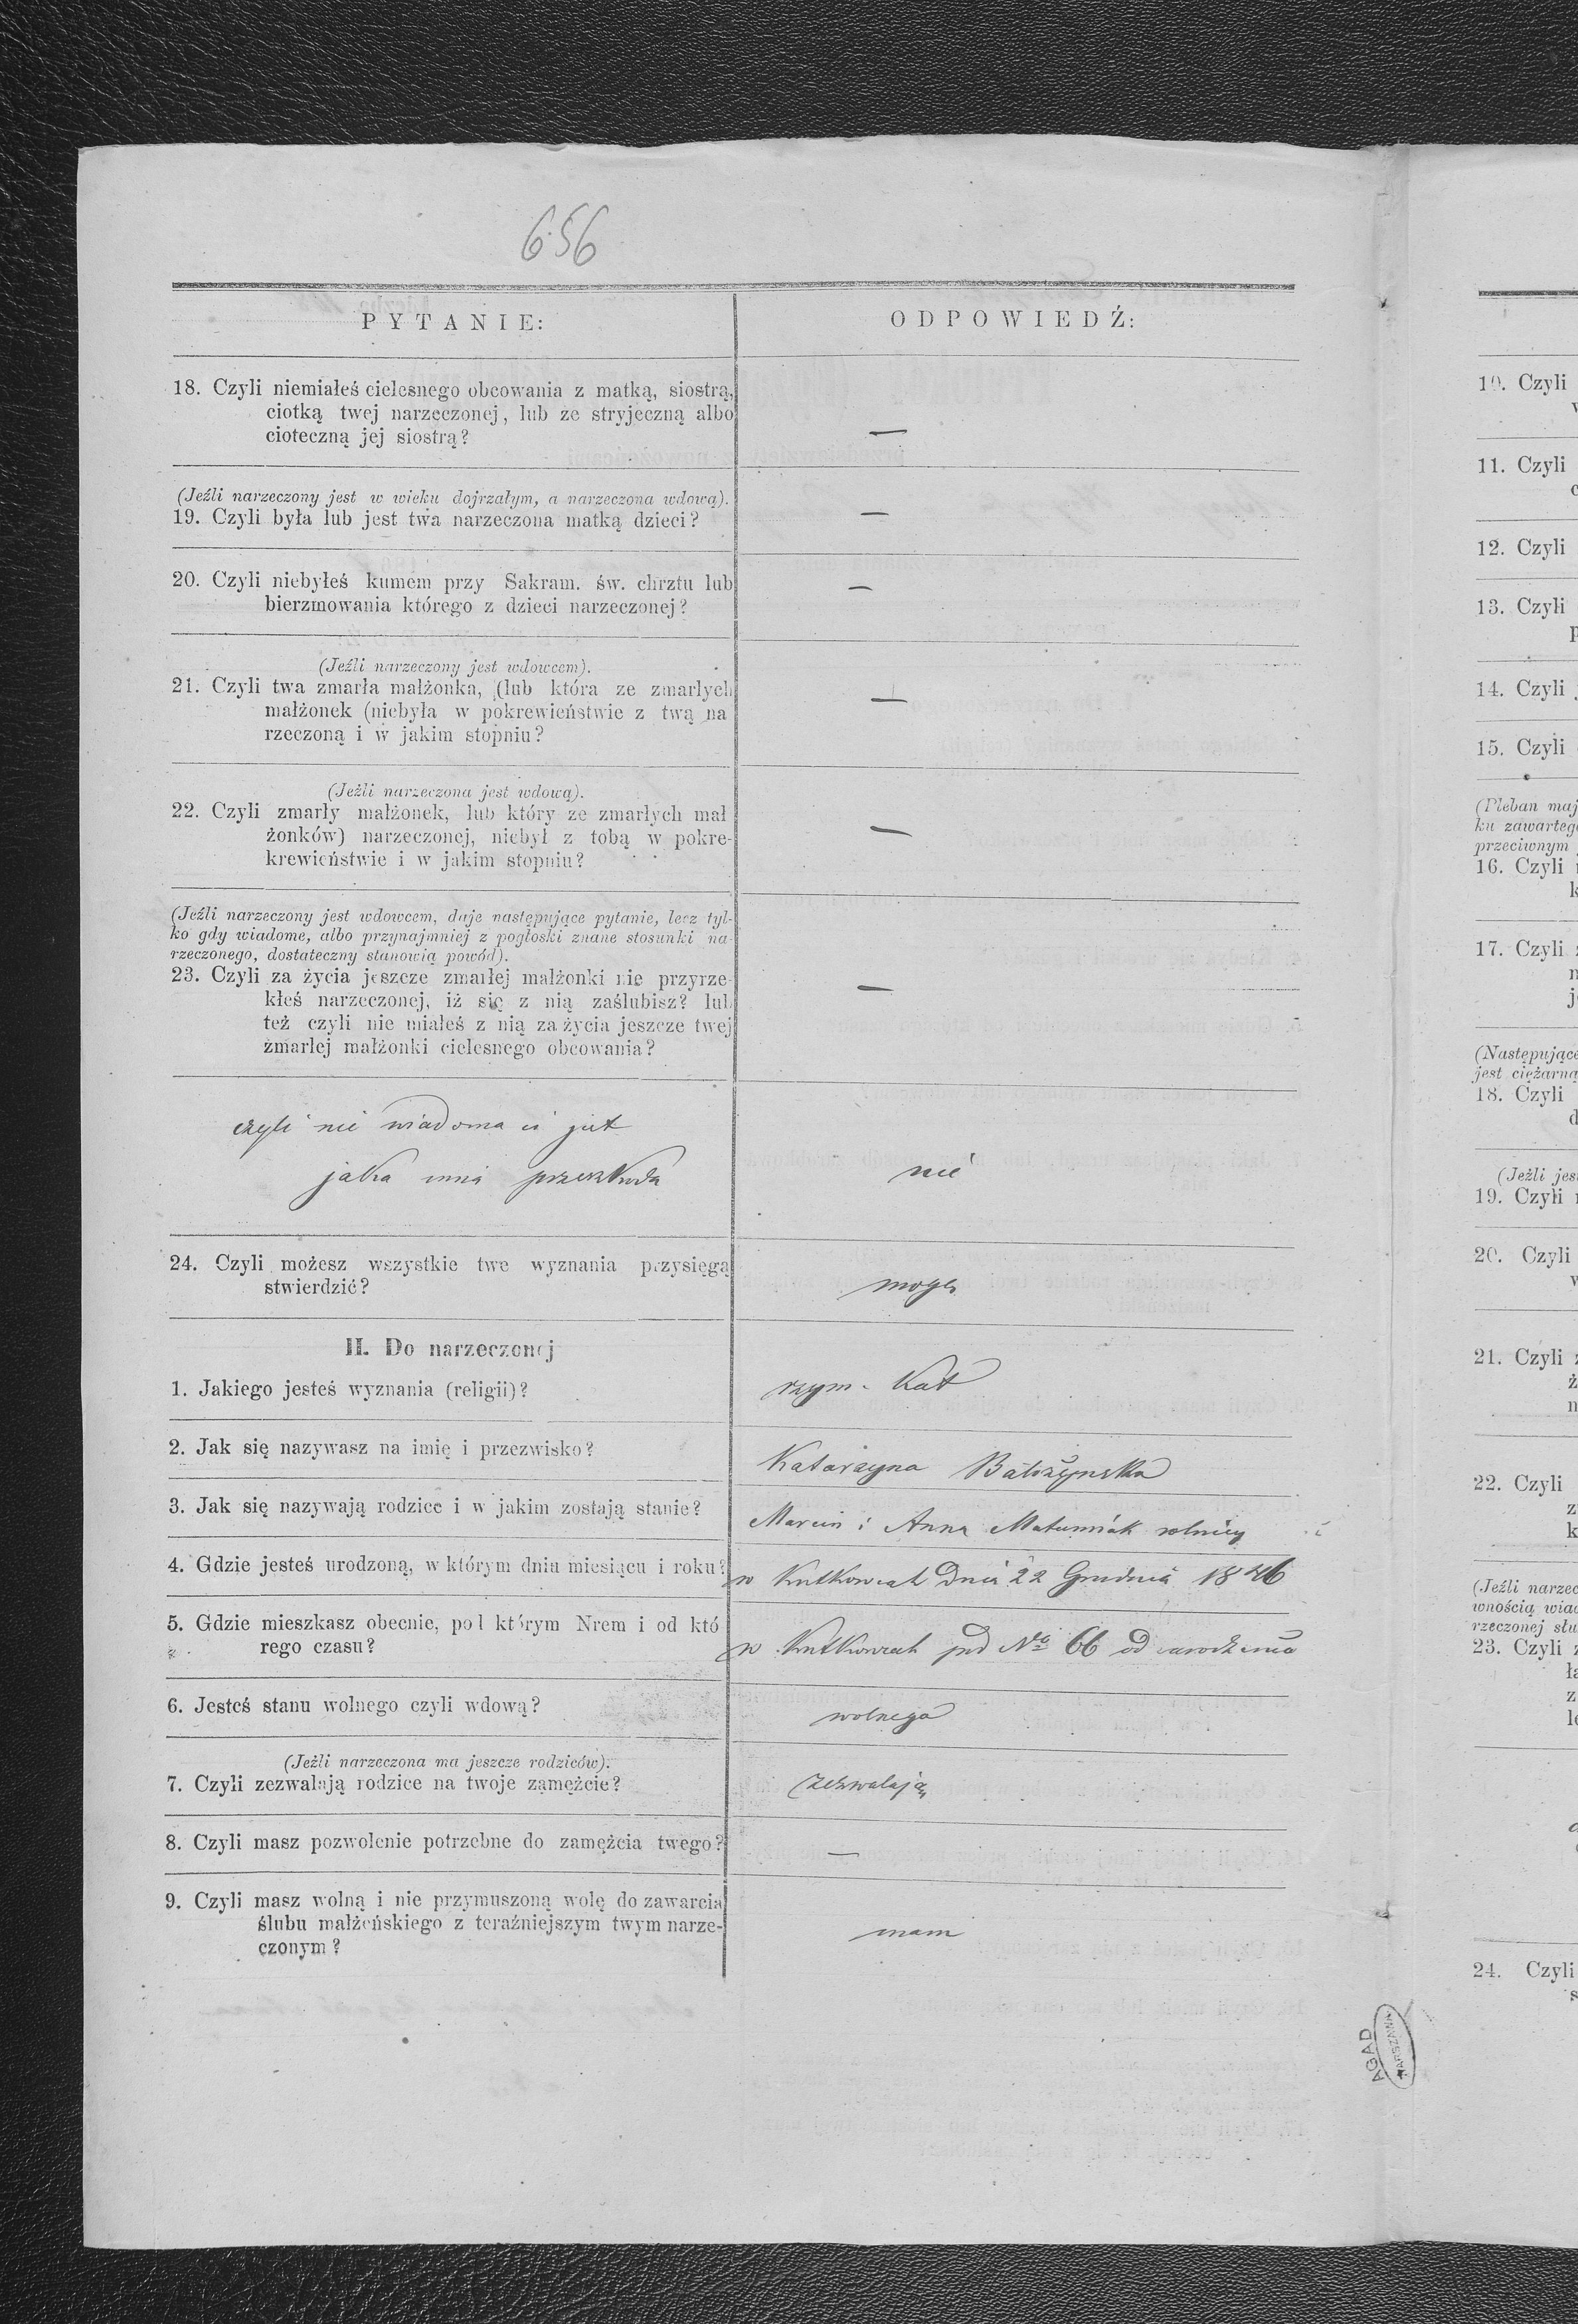 656
PYTANIE:
ODPOWIEDŹ:
18. Czyli niemiałeś cielesnego obcowania z matką, siostrą,
ciotką twej narzeczonej, lub ze stryjeczną albo
cioteczną jej siostrą?
—
(Jeźli narzeczony jest w wieku dojrzałym, a narzeczona wdową).
19. Czyli była lub jest twa narzeczona matką dzieci?
—
20. Czyli niebyłeś kumem przy Sakram. św. chrztu lub
bierzmowania którego z dzieci narzeczonej?
—
(Jeźli narzeczony jest wdowcem).
21. Czyli twa zmarła małżonka, (lub która ze zmarłych
małżonek (niebyła w pokrewieństwie z twą na
rzeczoną i w jakim stopniu?
—
(Jeźli narzeczona jest wdową).
22. Czyli zmarły małżonek, lub który ze zmarłych mał
żonków) narzeczonej, niebył z tobą w pokre-
krewieństwie i w jakim stopniu?
—
(Jeźli narzeczony jest wdowcem, daje następujące pytanie, lecz tyl-
ko gdy wiadome, albo przynajmniej z pogłoski znane stosunki na-
rzeczonego, dostateczny stanowią powód).
23. Czyli za życia jeszcze zmarłej małżonki nie przyrze-
kłeś narzeczonej, iż się z nią zaślubisz? lub
też czyli nie miałeś z nią za życia jeszcze twej
zmarłej małżonki cielesnego obcowania?
—
czyli nie wiadoma ci jest
jaka inna przeszkoda
nie
24. Czyli możesz wszystkie twe wyznania przysięgą
stwierdzić?
mogę
II. Do narzeczonej
1. Jakiego jesteś wyznania (religii)?
rzym. Kat
2. Jak się nazywasz na imię i przezwisko?
Katarzyna
3. Jak się nazywają rodzice i w jakim zostają stanie?
Marcin i Anna Matusniak rolnicy
4. Gdzie jesteś urodzoną, w którym dniu miesiącu i roku?
w Kutkowcach Dnia 22 Grudnia 1846
5. Gdzie mieszkasz obecnie, pod którym Nrem i od któ
rego czasu?
w Kutkowcach pod No 66 od urodzenia
6. Jesteś stanu wolnego czyli wdową?
wolnego
(Jeźli narzeczona ma jeszcze rodziców).
7. Czyli zezwalają rodzice na twoje zamężcie?
zezwalają
8. Czyli masz pozwolenie potrzebne do zamężcia twego?
—
9. Czyli masz wolną i nie przymuszoną wolę do zawarcia
ślubu małżeńskiego z teraźniejszym twym narze-
czonym?
mam
AGAD
WARSZAWA
10. Czyli
11. Czyli
12. Czyli
13. Czyli
14. Czyli
15. Czyli
(Pleban maj
ku zawarteg
przeciwnym
16. Czyli
17. Czyli
(Następujące
jest ciężarną
18. Czyli
(Jeźli jes
19. Czyli
20. Czyli
21. Czyli
22. Czyli
(Jeźli narzec
wnością wiad
rzeczonej stu
23. Czyli
24. Czyli